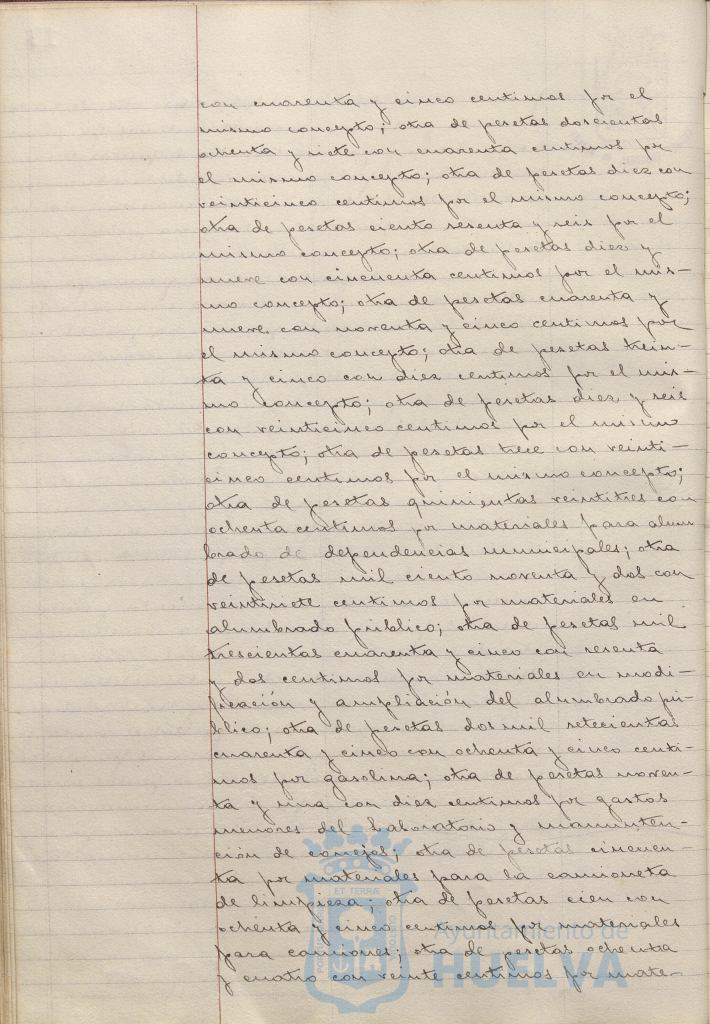 con cuarenta y cinco centimos por el
mismo concepto; otra de pesetas doscientas
ochenta y siete con cuarenta centimos por
el mismo concepto; otra de pesetas diez con
veinticinco centimos por el mismo concepto;
otra de pesetas ciento sesenta y seis por el
mismo concepto; otra de pesetas diez y
nueve con cincuenta centimos por el mis-
mo concepto; otra de pesetas cuarenta y
nueve con noventa y cinco centimos por
el mismo concepto; otra de pesetas trein-
ta y cinco con diez centimos por el mis-
mo concepto; otra de pesetas diez y seis
con veinticinco centimos por el mismo
concepto; otra de pesetas trece con veinti-
cinco centimos por el mismo concepto;
otra de pesetas quinientas veintitres con
ochenta centimos por materiales para alum
brado de dependencias municipales; otra
de pesetas mil ciento noventa y dos con
veintisiete centimos por materiales en
alumbrado público; otra de pesetas mil
trescientas cuarenta y cinco con sesenta
y dos centimos por materiales en modi-
ficación y ampliación del alumbrado pú-
blico; otra de pesetas dos mil setecientas
cuarenta y cinco con ochenta y cinco centi-
mos por gasolina; otra de pesetas noven-
ta y una con diez centimos por gastos
menores del Laboratorio y manunten-
ción de conejos; otra de pesetas cincuen-
ta por materiales para la camioneta
de limpieza; otra de pesetas cien con
ochenta y cinco centimos por materiales
para camiones; otra de pesetas ochenta
y cuatro con veinte centimos por mate-
ET TERRA
Ayuntamiento de
HUELVA